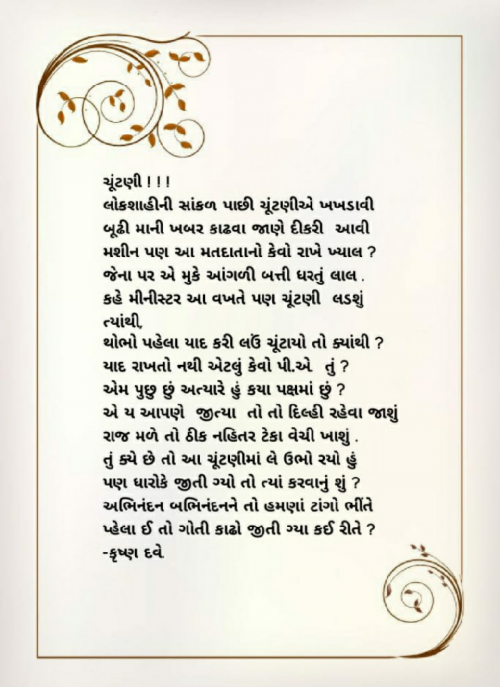 ચૂંટણી ! ! !
લોકશાહીની સાંકળ પાછી ચૂંટણીએ ખખડાવી
બૂઢી માની ખબર કાઢવા જાણે દીકરી  આવી
મશીન પણ આ મતદાતાનો કેવો રાખે ખ્યાલ ?
જેના પર એ મુકે આંગળી બત્તી ધરતું લાલ .
કહે મીનીસ્ટર આ વખતે પણ ચૂંટણી  લડશું
ત્યાંથી,
થોભો પહેલા યાદ કરી લઉં ચૂંટાયો તો ક્યાંથી ?
યાદ રાખતો નથી એટલું કેવો પી.એ.  તું ?
એમ પુછુ છું અત્યારે હું કયા પક્ષમાં છું ?
એ ય આપણે  જીત્યા  તો તો દિલ્હી રહેવા જાશું
રાજ મળે તો ઠીક નહિતર ટેકા વેચી ખાશું .
તું ક્યે છે તો આ ચૂંટણીમાં લે ઉભો રયો હું
પણ ધારોકે જીતી ગ્યો તો ત્યાં કરવાનું શું ?
અભિનંદન બભિનંદનને તો હમણાં ટાંગો ભીંતે
પ્હેલા ઈ તો ગોતી કાઢો જીતી ગ્યા કઈ રીતે ?
-કૃષ્ણ દવે